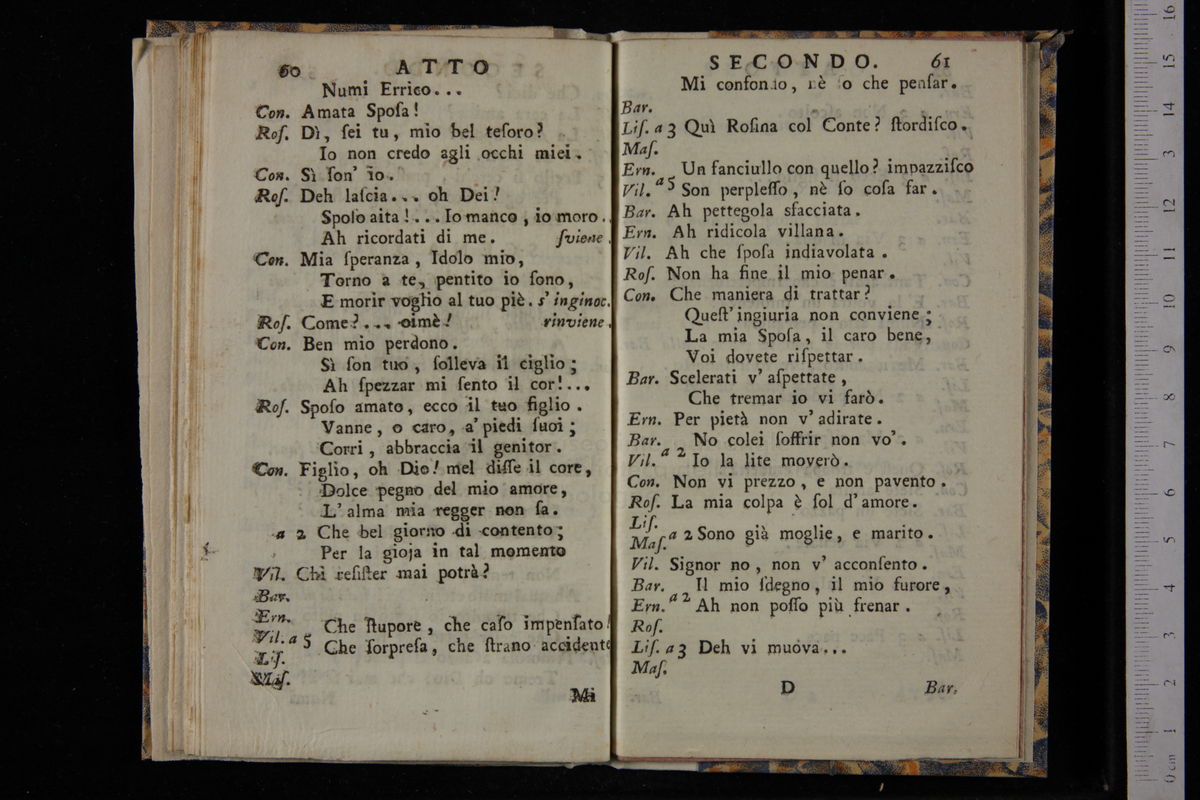 60 ATTO
Numi Errico...
Con. Amata Spoſa!
Roſ. Dì, ſei tu, mio bel teſoro?
Io non credo agli occhi miei.
Con. Sì ſon' io.
Roſ. Deh laſcia... oh Dei!
Spoſo aita!... Io manco, io moro.
Ah ricordati di me. ſviene.
Con. Mia ſperanza, Idolo mio,
Torno a te, pentito io ſono,
E morir voglio al tuo piè. s' inginoc.
Roſ. Come?... oimè! rinviene.
Con. Ben mio perdono.
Sì ſon tuo, ſolleva il ciglio;
Ah ſpezzar mi ſento il cor!...
Roſ. Spoſo amato, ecco il tuo figlio.
Vanne, o caro, a' piedi ſuoi;
Corri, abbraccia il genitor.
Con. Figlio, oh Dio! mel diſſe il core,
Dolce pegno del mio amore,
L' alma mia regger non ſa.
a 2 Che bel giorno di contento;
Per la gioja in tal momento
Vil. Chi reſiſter mai potrà?
Bar.
Ern.
Vil. a 5 Che ſtupore, che caſo impenſato!
Liſ. Che ſorpreſa, che ſtrano accidente
Maſ.
Mi
SECONDO. 61
Mi confondo, nè ſo che penſar.
Bar.
Liſ. a 3 Quì Roſina col Conte? ſtordiſco.
Maſ.
Ern. Un fanciullo con quello? impazziſco
Vil. a 5 Son perpleſſo, nè ſo coſa far.
Bar. Ah pettegola sfacciata.
Ern. Ah ridicola villana.
Vil. Ah che ſpoſa indiavolata.
Roſ. Non ha fine il mio penar.
Con. Che maniera di trattar?
Queſt' ingiuria non conviene;
La mia Spoſa, il caro bene,
Voi dovete riſpettar.
Bar. Scelerati v' aſpettate,
Che tremar io vi farò.
Ern. Per pietà non v' adirate.
Bar. No colei ſoffrir non vo'.
Vil. a 2 Io la lite moverò.
Con. Non vi prezzo, e non pavento.
Roſ. La mia colpa è ſol d' amore.
Liſ.
Maſ. a 2 Sono già moglie, e marito.
Vil. Signor no, non v' acconſento.
Bar. Il mio ſdegno, il mio furore,
Ern. a 2 Ah non poſſo più frenar.
Roſ.
Liſ. a 3 Deh vi muova...
Maſ.
D Bar.
0 cm 1 2 3 4 5 6 7 8 9 10 11 12 13 14 15 16